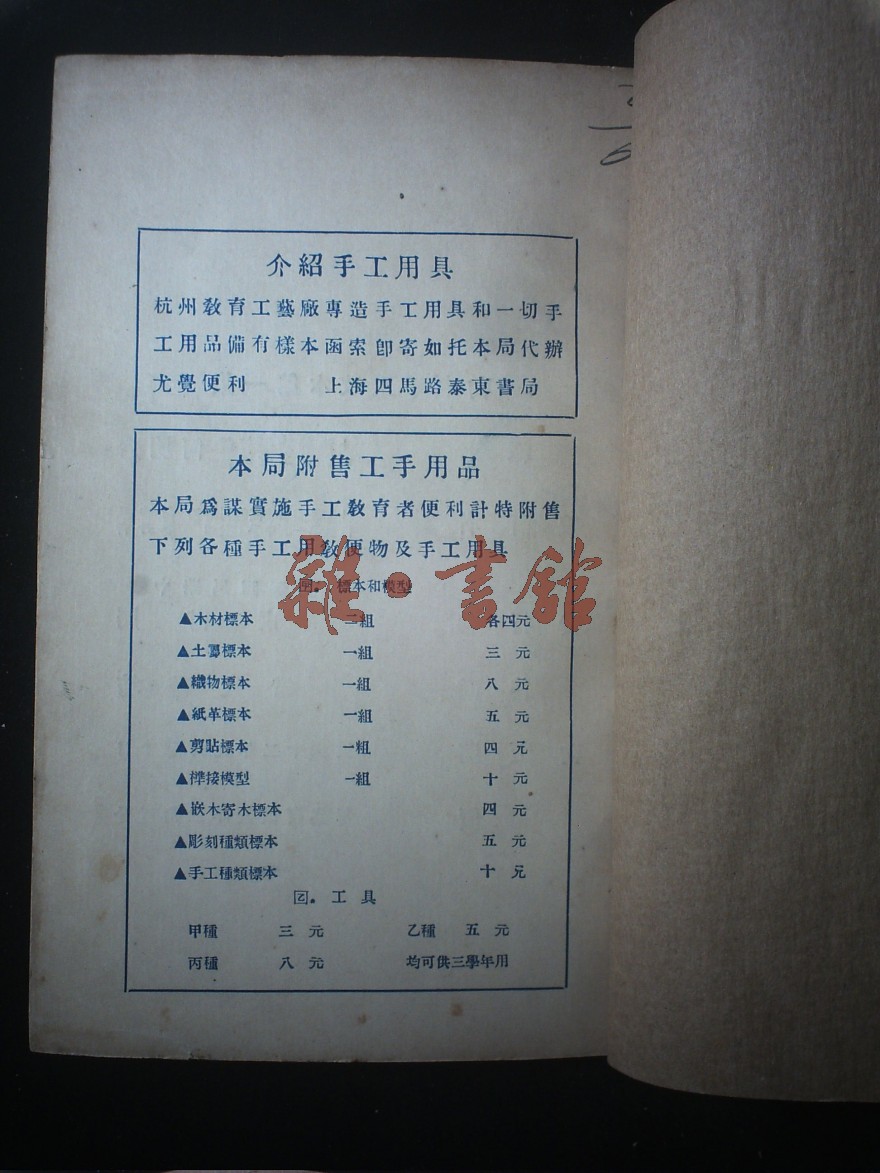 介紹手工用具
杭州敎育工藝廠專造手工用具和一切手
工用品備有樣本函索卽寄如托本局代辦
尤覺便利 上海四馬路泰東書局
本局附售工手用品
本局爲謀實施手工敎育者便利計特附售
下列各種手工用敎便物及手工用具
標本和模型
▲木材標本 二組 各四元
▲土壤標本 一組 三元
▲織物標本 一組 八元
▲紙革標本 一組 五元
▲剪貼標本 一粗 四元
▲榫接模型 一組 十元
▲嵌木寄木標本 四元
▲彫刻種類標本 五元
▲手工種類標本 十元
乙. 工具
甲種 三元 乙種 五元
丙種 八元 均可供三學年用
雜·書館